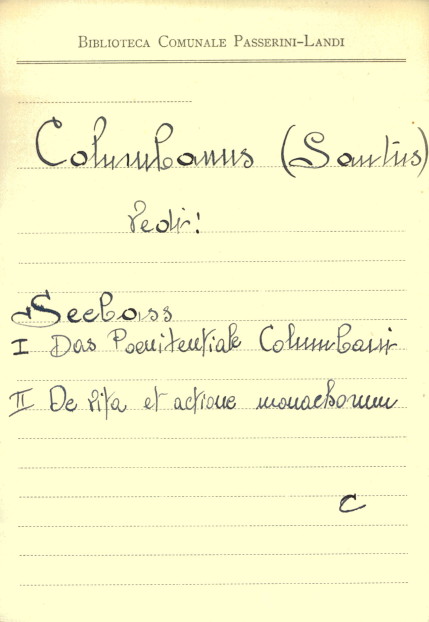 BIBLIOTECA COMUNALE PASSERINI-LANDI
Columbanus (Santus)
Vedi:
Seebass
I Das Poenitentiale Columbani
II De vita et actione monachorum
C